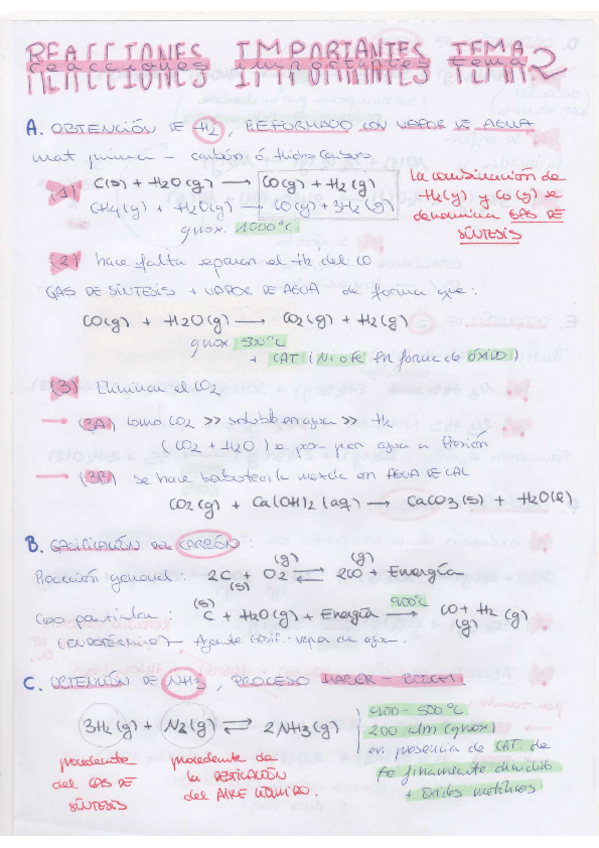 REACCIONES IMPORTANTES TEMA 2
A. OBTENCIÓN DE H2, REFORMADO CON VAPOR DE AGUA
mat prima – carbón ó hidrocarburo
(1) C(s) + H2O(g) → CO(g) + H2(g)
CH4(g) + H2O(g) → CO(g) + 3H2(g)
aprox. 1000°C
La combinación de
H2(g) y CO(g) se
denomina GAS DE
SÍNTESIS
(2) hace falta separar el H2 del CO
GAS DE SÍNTESIS + VAPOR DE AGUA de forma que:
CO(g) + H2O(g) → CO2(g) + H2(g)
aprox 500°C
+ CAT (Ni o Fe en forma de óxido)
(3) Eliminar el CO2
→ (3A) como CO2 >> soluble en agua >> H2
(CO2 + H2O) a pasar por agua a presión
→ (3B) se hace borbotear la mezcla en AGUA DE CAL
CO2(g) + Ca(OH)2(aq) → CaCO3(s) + H2O(l)
B. GASIFICACIÓN DEL CARBÓN:
Reacción general: 2C(s) + O2(g) ⇌ 2CO(g) + Energía
Caso particular: C(s) + H2O(g) + Energía → 900°C CO(g) + H2(g)
(ENDOTÉRMICO) Agente gasif.: vapor de agua.
C. OBTENCIÓN DE NH3, PROCESO HABER – BOSCH
3H2(g) + N2(g) ⇌ 2NH3(g)
400 – 500°C
200 atm (aprox)
en presencia de CAT. de
Fe finamente dividido
+ óxidos metálicos
procedente
del GAS DE
SÍNTESIS
procedente de
la DESTILACIÓN
del AIRE LÍQUIDO.